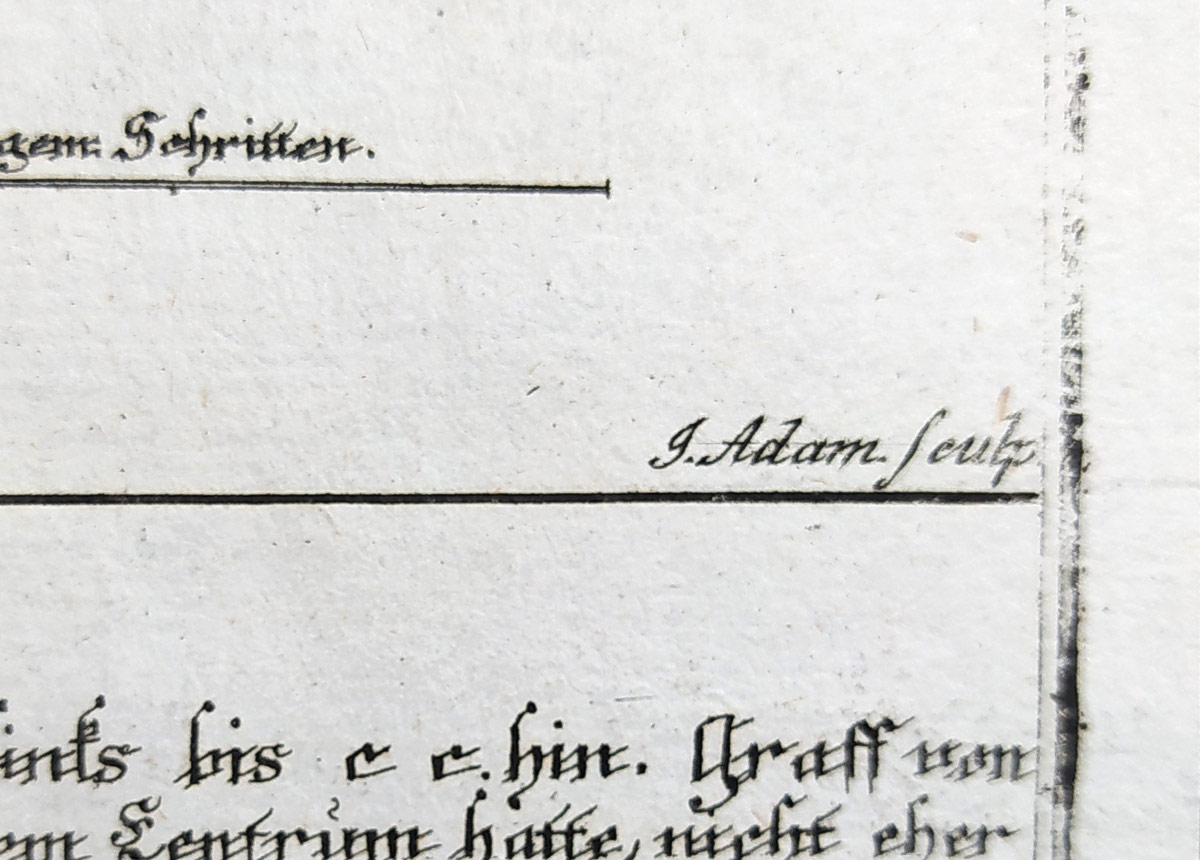 gem: Schritten.
J. Adam. sculp
links bis c c. hin. Graff von
dem Centrum hatte, nicht eher